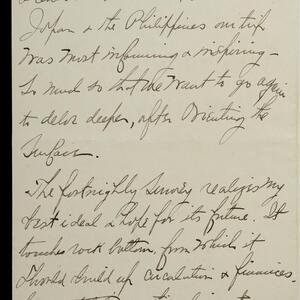 Japan & the Philippines our trip
was most informing & inspiring –
So much so that we want to go again
to delve deeper, after orienting the
Surface.
The fortnightly Survey realizes my
best ideal & hope for its future. It
touches rock bottom, from which it
should build up circulation & finances.